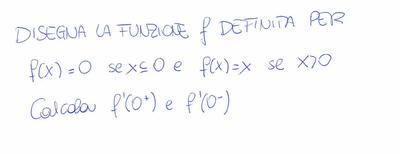 DISEGNA LA FUNZIONE f DEFINITA PER
f(x) = 0 se x ≤ 0 e f(x) = x se x>0
Calcolare f'(0⁺) e f'(0⁻)